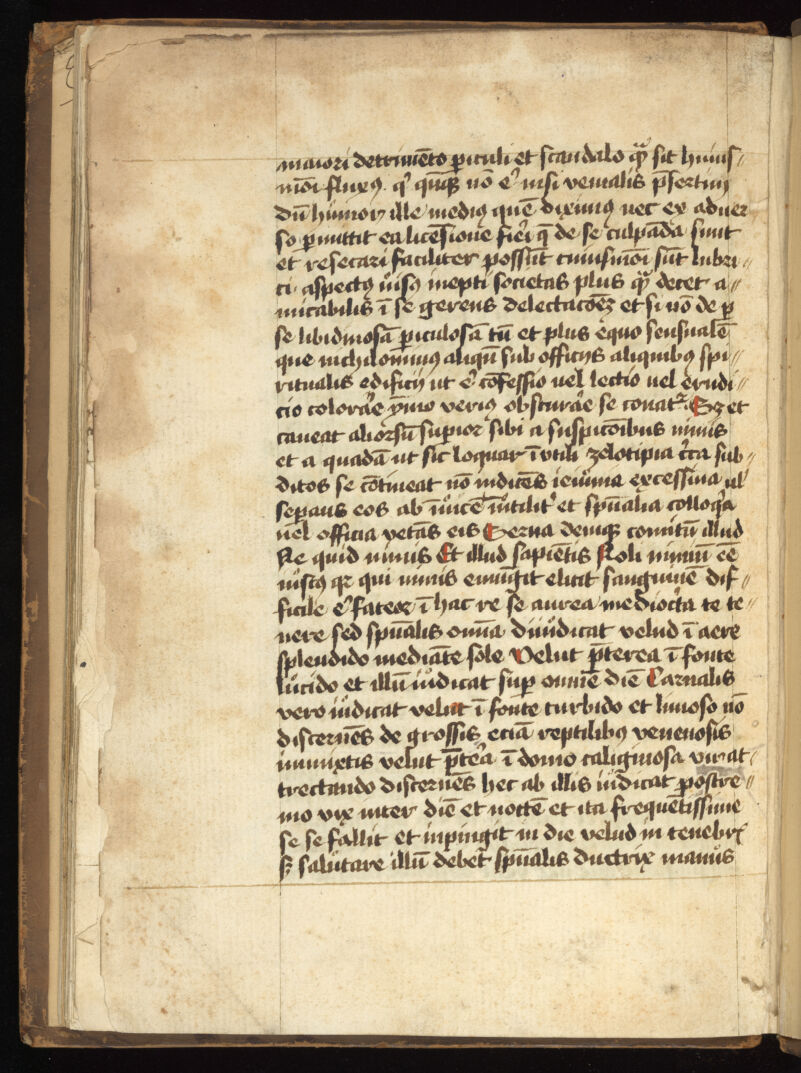 maiori detrimēto ꝑiculi et scandalo qͣꝫ sit huius//
mōi fluxꝯ qͥ qn̄qꝫ nō ē nisi venialis p̄sertim
dū humor ille mediꝯ quē diximꝯ nec ex aduer
so ꝑmittit ea licēsione fieri q̄ de se culpāda sunt
et resecari faciliter possūt cuiusmōi sūt lubri//
ci aspectꝯ uisꝯ inepti societas plus qͣꝫ decet a//
micabilis ī se gerens delectacōēꝫ et si nō de ꝑ
se libidinosā ꝑiculosā tn̄ et plus equo sensualē
que nichilominꝯ aliqn̄ sub officijs aliquibꝯ spi//
ritualis edificij ut ē cōfessio uel lectio uel erudi//
cio colorāe ymo veriꝯ obscurāe se conatᷣ Sꝫ et
caueat aliorsū suꝑior sibi a suspicōibus nimis
et a quadā ut sic loquar īutili zelotipia cͥca sub//
ditos se cōtineat nō indicēs ieiunia excessiua ul̓
seꝑans eos ab inuicē īutilitᷣ et spūalia colloqͥa
uel officia vetās eis Serua deniqꝫ comicū illud
Ne quid nimis Et illud sapiētis Noli nimiū eē
iustꝯ qꝛ qui nimis emūgit elicit sanguinē dif//
ficile ē fateor ī hac re se aurea mediocͥta te te//
nere sed spūalis omīa diiudicat velud ī aere
splendido mediāte sole Velut p̄terea ī fonte
lucido et illū iudicat suꝑ omnē diē Carnalis
vero iudicat velut ī fonte turbido et limoso nō
discernēs de grossis eciā reptilibꝯ venenosis
inmixtis velut p̄tēa ī domo caliginosa virat//
trectando discernēs hec ab illis iudicat postre//
mo vix inter diē et noctē et ita frequētissime
se se fallit et inpingit in die velud in tenebrꝭ
sꝫ salutare illū debet spūalis ductrix manus